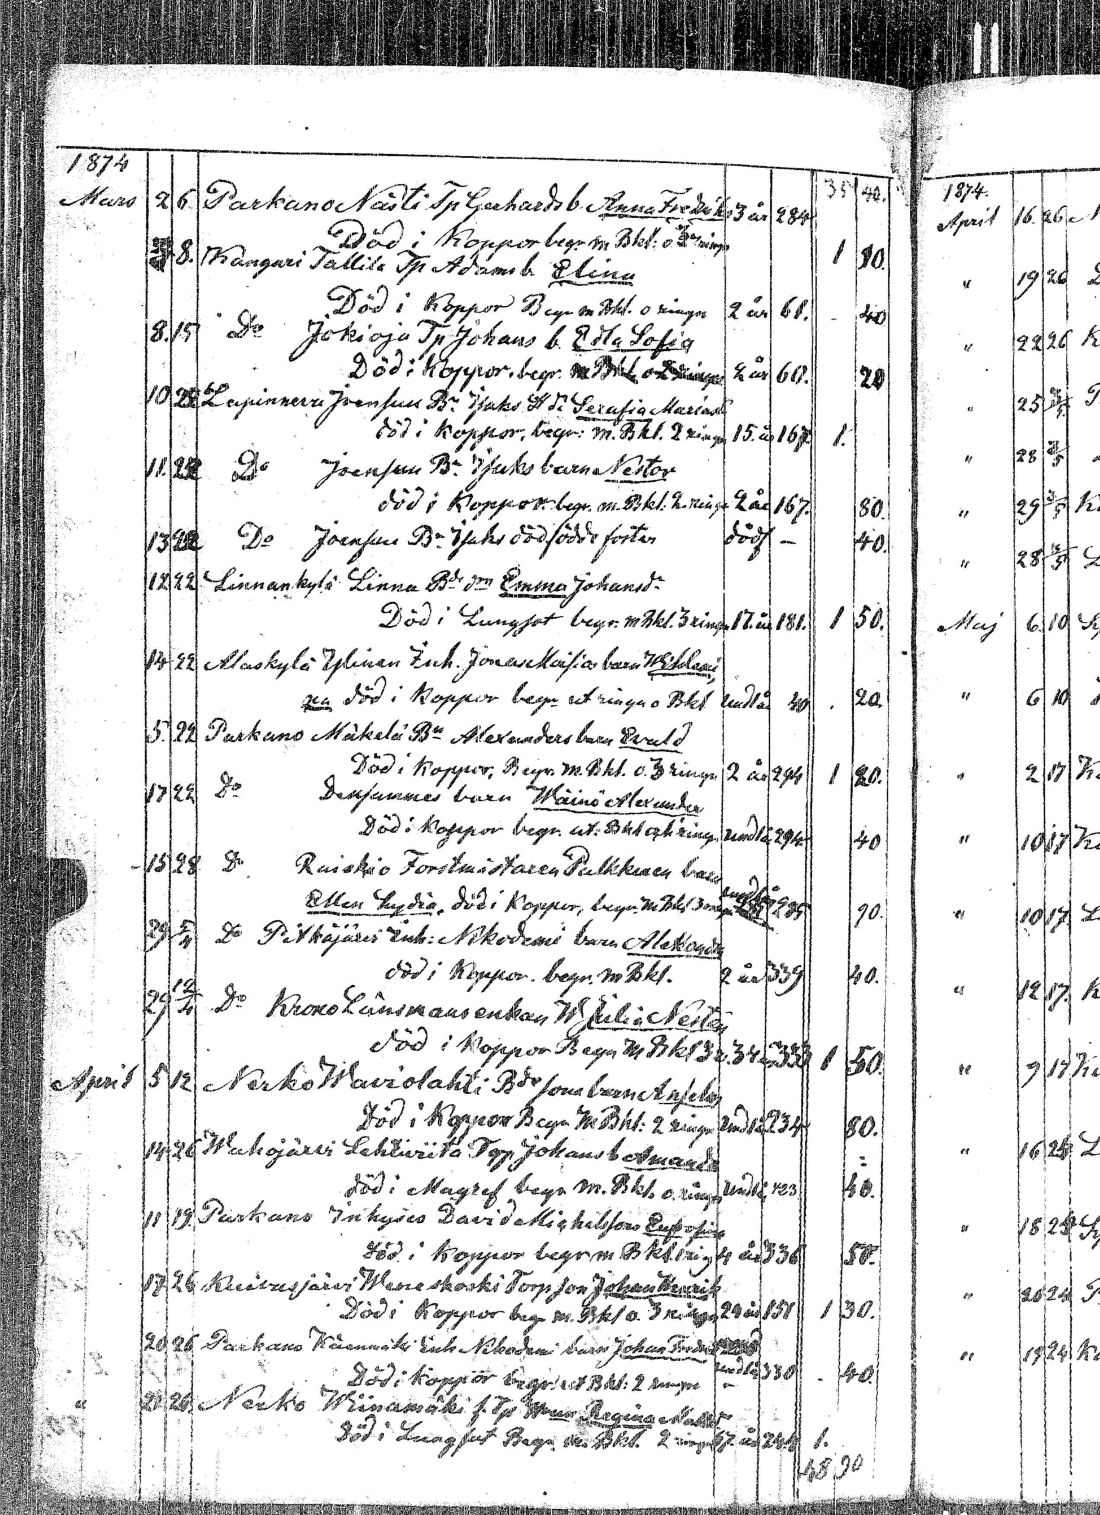 1874
35 40.
Mars 2 6. Parkano Nästi Tp Gerhards b. Anna Fredrika 3 år 284
Död i Koppor begr. m Bkl: o 2 ringn 1 20.
8. Kangari Tallila Tp Adams b. Elina
Död i Koppor Begr m Bkl. o ringn 2 år 61. - 40
8. 15 Do Jokioja Tp Johans b. Edla Sofia
Död i Koppor. begr. m Bkl o 2 ringn 2 år 60. 20
10 22 Lapinneva Joensuu Bn Isaks Serafia Maria
död i koppor, begr: m. Bkl. 2 ringn 15. år 167 1.
11. 22 Do Joensuu Bn Isaks barn Nestor
död i Koppor begr. m. Bkl. 2. ringn 2 år 167. 80.
13 22 Do Joensuu Bn Isaks dödfödde foster dödf - 40.
12 22 Linnankylä Linna Bds drn Emma Johansdr
Död i Lungsot begr. m Bkl. 3 ringn 17. år 181. 1 50.
14 22 Alaskylä Ylinen Inh. Jonas Maijas barn Wilhelmi
na död i Koppor begr ut ringn o Bkl undl år 40 . 20.
5. 22 Parkano Mäkelä Bn Alexanders barn Evald
Död i Koppor, Begr. m. Bkl. o. 3 ringn 2 år 294 1 20.
17 22 Do Densammes barn Wäinö Alexander
Död i Koppor begr. ut: Bkl ringn undl år 294 40
15 28 Do Raiskio Forstmästaren Palkkinen barn
Ellen Lydia. död i Koppor, begr. m Bkl 3 ringn undl år 285 90.
29 5/4 Do Pitkäjärvi Inh: Nikodemi barn Aleksandra
död i Koppor. begr. m Bkl. 2 år 339 40.
29 12/4 Do Krono Länsmansenkan W Julia Nestén
död i Koppor Begr m Bkl 3 r. 34 år 333 1 50.
April 5 12 Nerko Waviolahti Bds Jona barn Anselm
Död i Koppor Begr m Bkl: 2 ringn undl år 234 80.
14 26 Wahojärvi Lehtiriita Tpp Johans b Amanda
död i Magref begr m. Bkl. o. ringn undl år 423 40.
11 19 Parkano David Michelssons Eufrosina
död i koppor begr m Bkl ring 4 år 336 50.
17 26 Kuivasjärvi Wereskoski Torp son Johan Henrik
Död i Koppor begr m. Bkl o. 3 ringn 29 år 151 1 30.
20 26 Parkano Käenmäki Inh Nikodemi barn Johan Fredrik
Död i Koppor begr. ut Bkl: 2 ringn undl år 330 . 40.
" 21 26. Nerko Wiinamäki f. Tp Regina Matts
Död i Lungsot Begr. m. Bkl. 2 ringn 67. år 244 1.
48 90
1874.
April 16. 26
" 19 26
" 22 26 K
" 25
" 28 3/5
" 29 3/5 K
" 28 3/5 L
Maj 6. 10
" 6 10
" 2 17 K
" 10 17 K
" 10 17. L
" 12 17. K
" 9 17 K
" 16 24 L
" 18 24
" 20 24 P
" 19 24 K